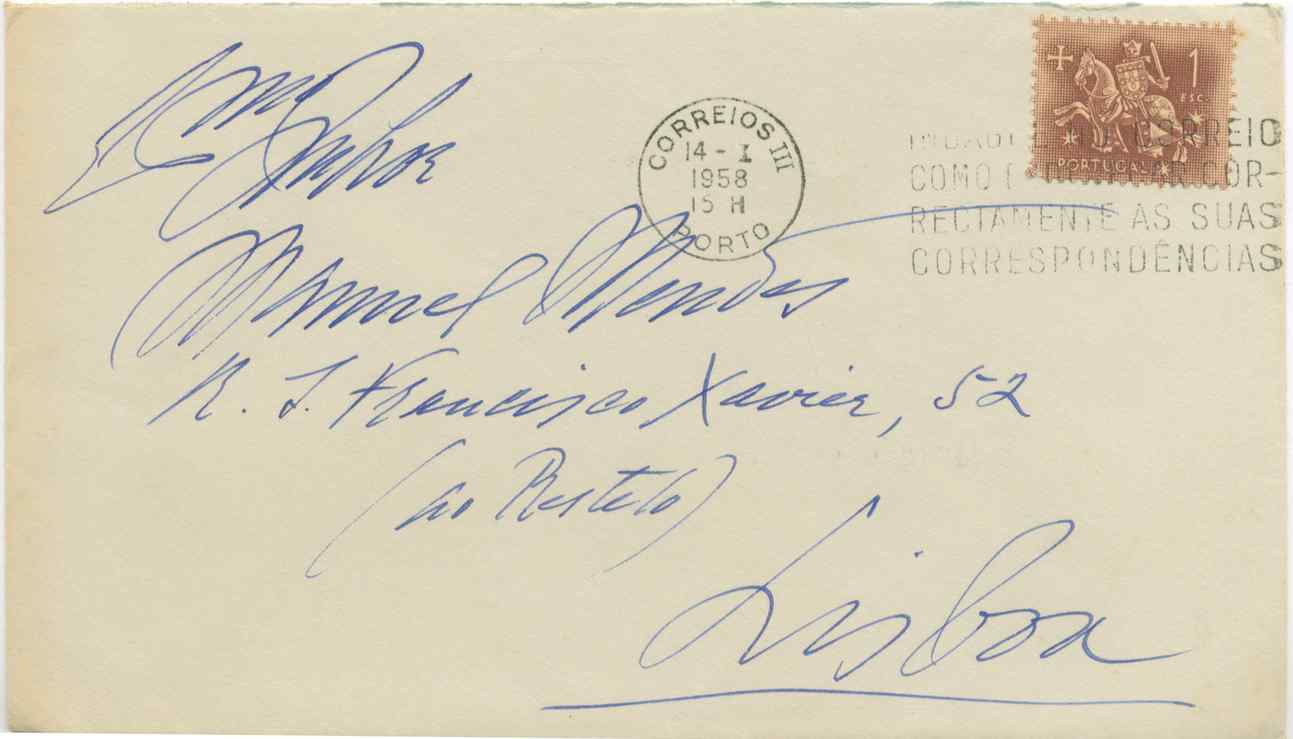 Exmo
Senhor
Manuel Mendes
R. S. Francisco Xavier, 52
(ao Restelo)
Lisboa
CORREIOS III
14 - I
1958
15 H
PORTO
1
ESC.
PORTUGAL
CORREIO
COMO COR-
RECTAMENTE AS SUAS
CORRESPONDÊNCIAS